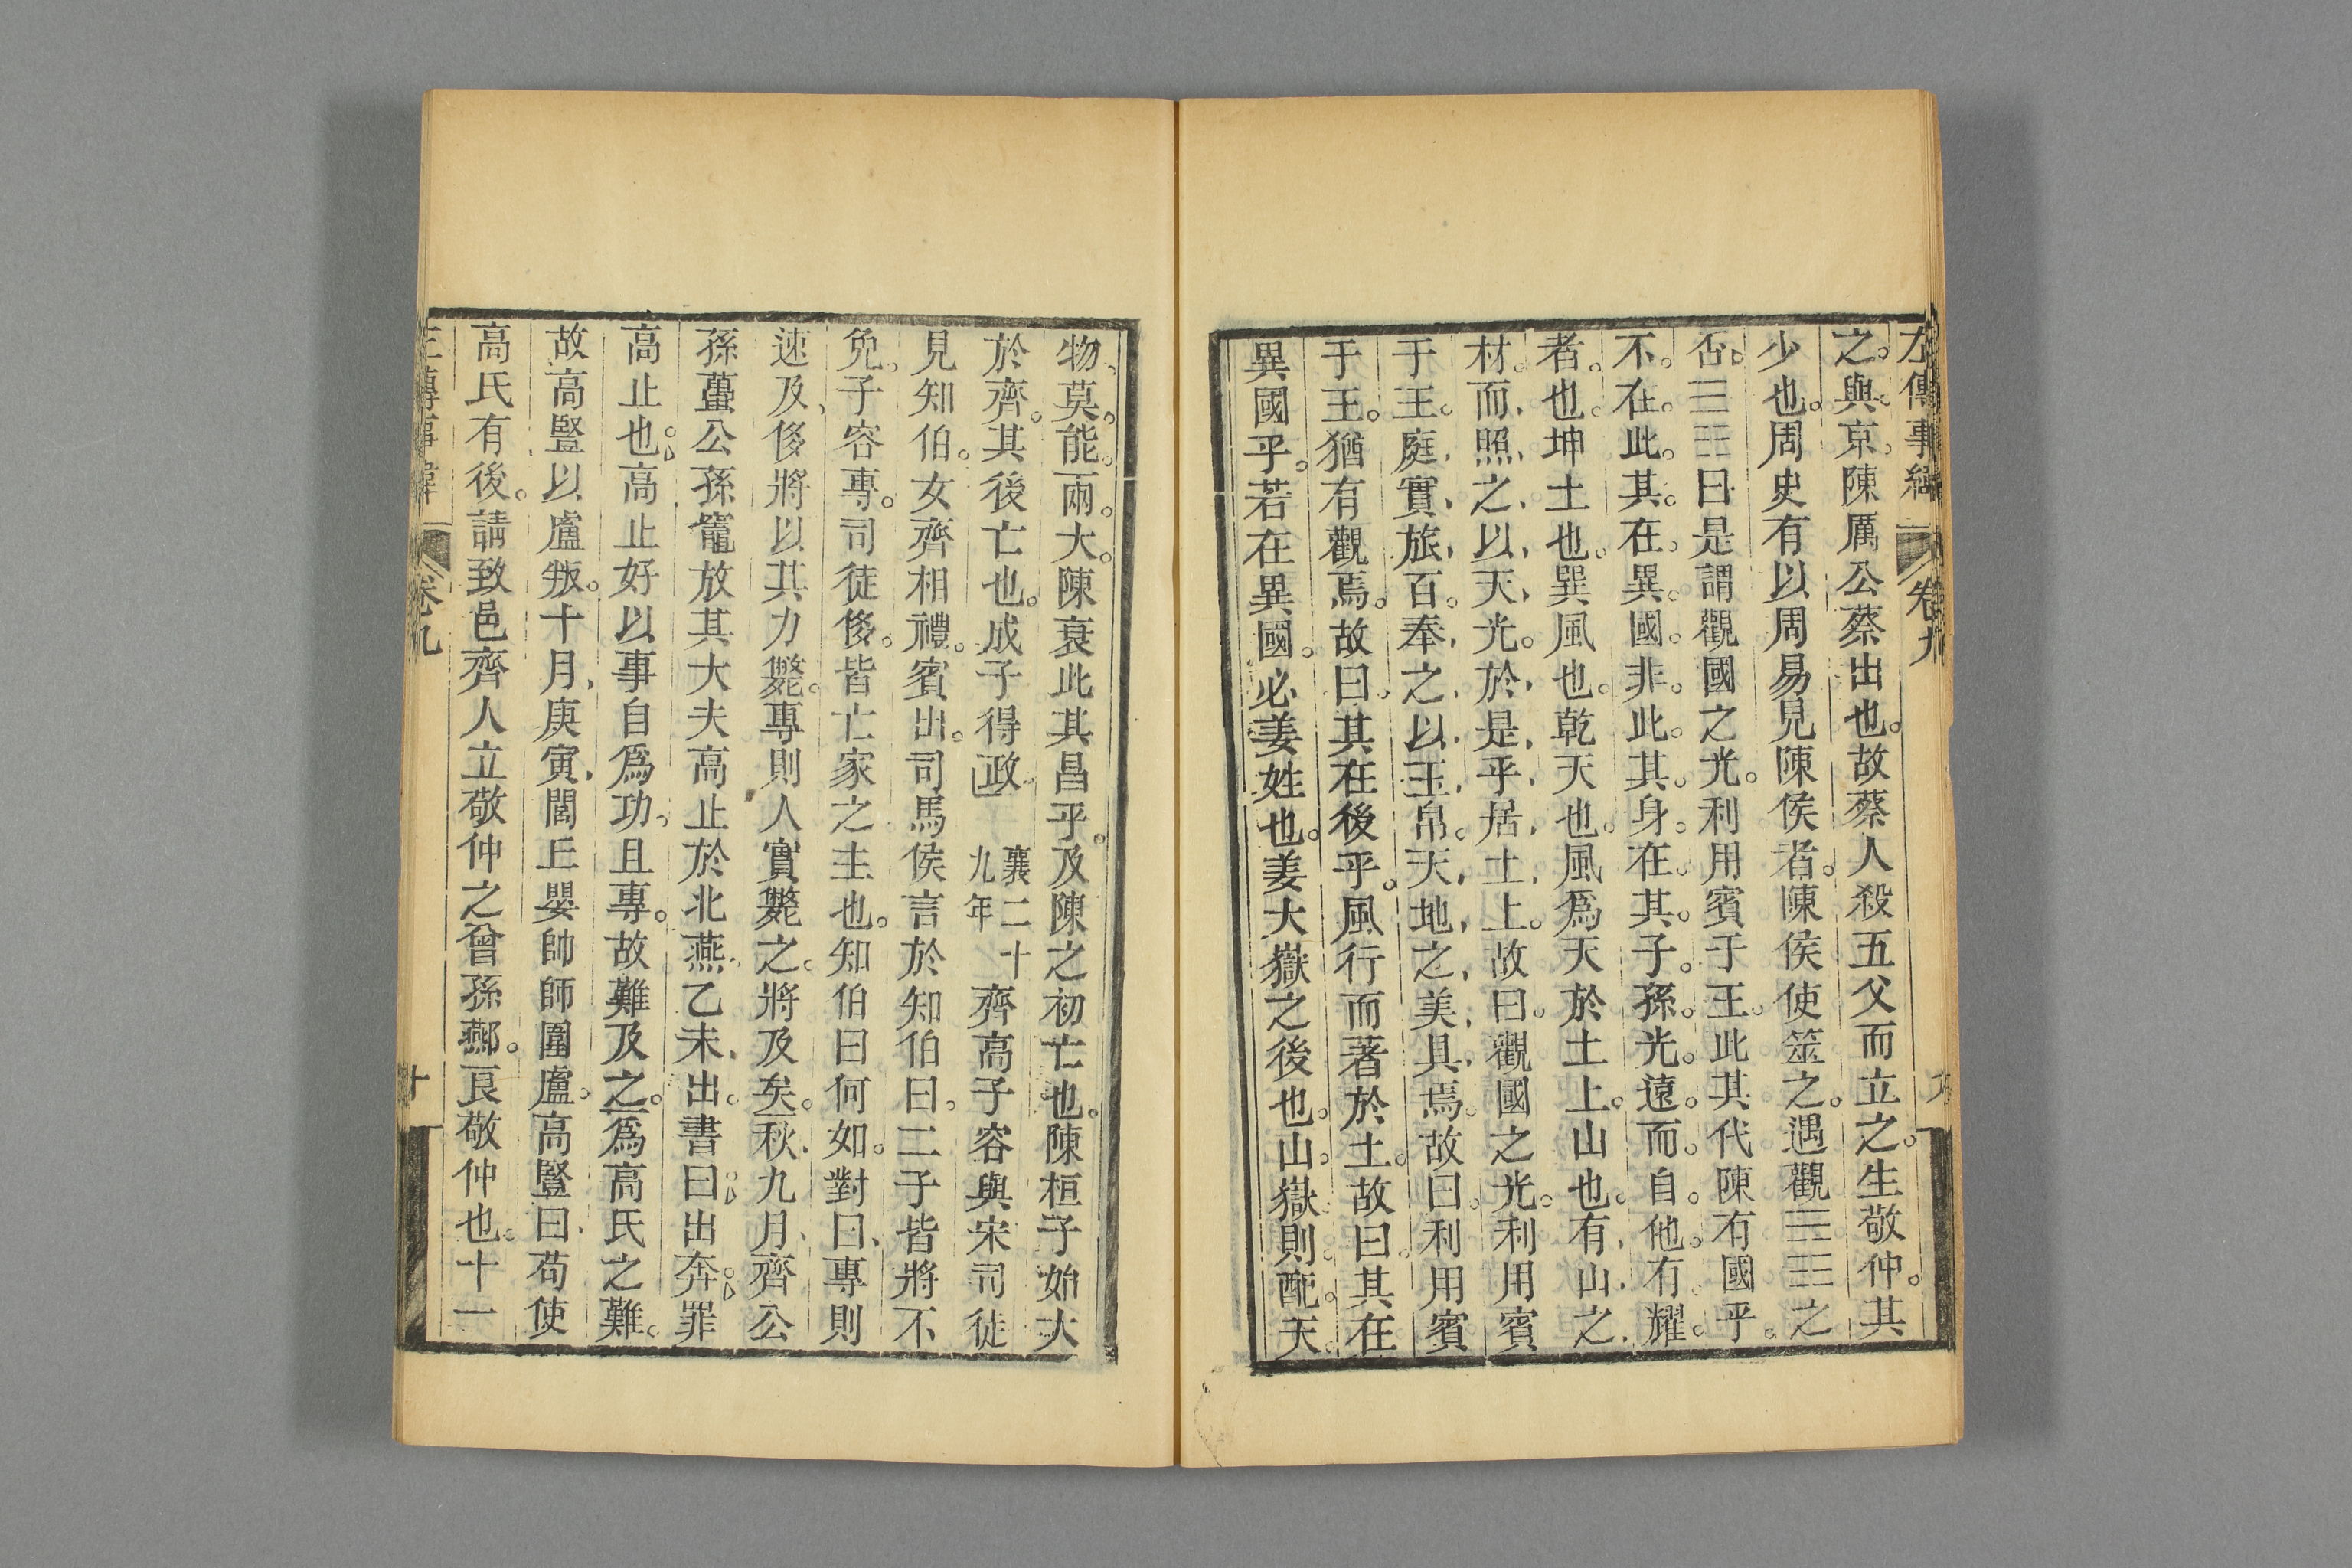 左傳事緯 卷九 九
之與京陳厲公蔡出也故蔡人殺五父而立之生敬仲其
少也周史有以周易見陳侯者陳侯使筮之遇觀䷓之
否䷋曰是謂觀國之光利用賓于王此其代陳有國乎
不在此其在異國非此其身在其子孫光遠而自他有耀
者也坤土也巽風也乾天也風爲天於土上山也有山之
材而照之以天光於是乎居土上故曰觀國之光利用賓
于王庭實旅百奉之以玉帛天地之美具焉故曰利用賓
于王猶有觀焉故曰其在後乎風行而著於土故曰其在
異國乎若在異國必姜姓也姜大嶽之後也山嶽則配天
物莫能兩大陳衰此其昌乎及陳之初亡也陳桓子始大
於齊其後亡也成子得政 襄二十九年 齊高子容與宋司徒
見知伯女齊相禮賓出司馬侯言於知伯曰二子皆將不
免子容專司徒侈皆亡家之主也知伯曰何如對曰專則
速及侈將以其力斃專則人實斃之將及矣秋九月齊公
孫蠆公孫竈放其大夫高止於北燕乙未出書曰出奔罪
高止也高止好以事自爲功且專故難及之爲高氏之難
故高豎以盧叛十月庚寅閭丘嬰帥師圍盧高豎曰苟使
高氏有後請致邑齊人立敬仲之曾孫酀良敬仲也十一
左傳事緯 卷九 十